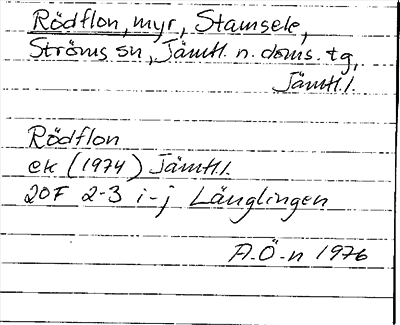 Rödflon, myr, Stamsele,
Ströms sn, Jämtl. n. doms. tg,
Jämtl. l.
Rödflon
ek (1974) Jämtl. l.
20F 2-3 i-j Länglingen
A-Ö-n 1976